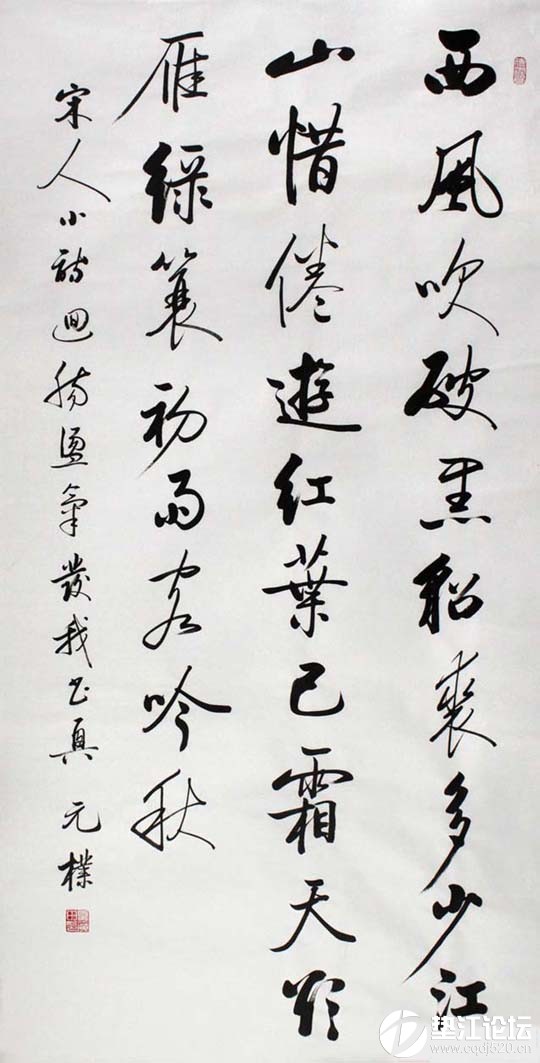 西風吹破黑貂裘多少江
山惜倦遊紅葉已霜天欲
雁綠蓑初雨客吟秋
宋人小詩迴腸盪氣發我書興 元樸
垫江论坛
www.cqdj520.cn